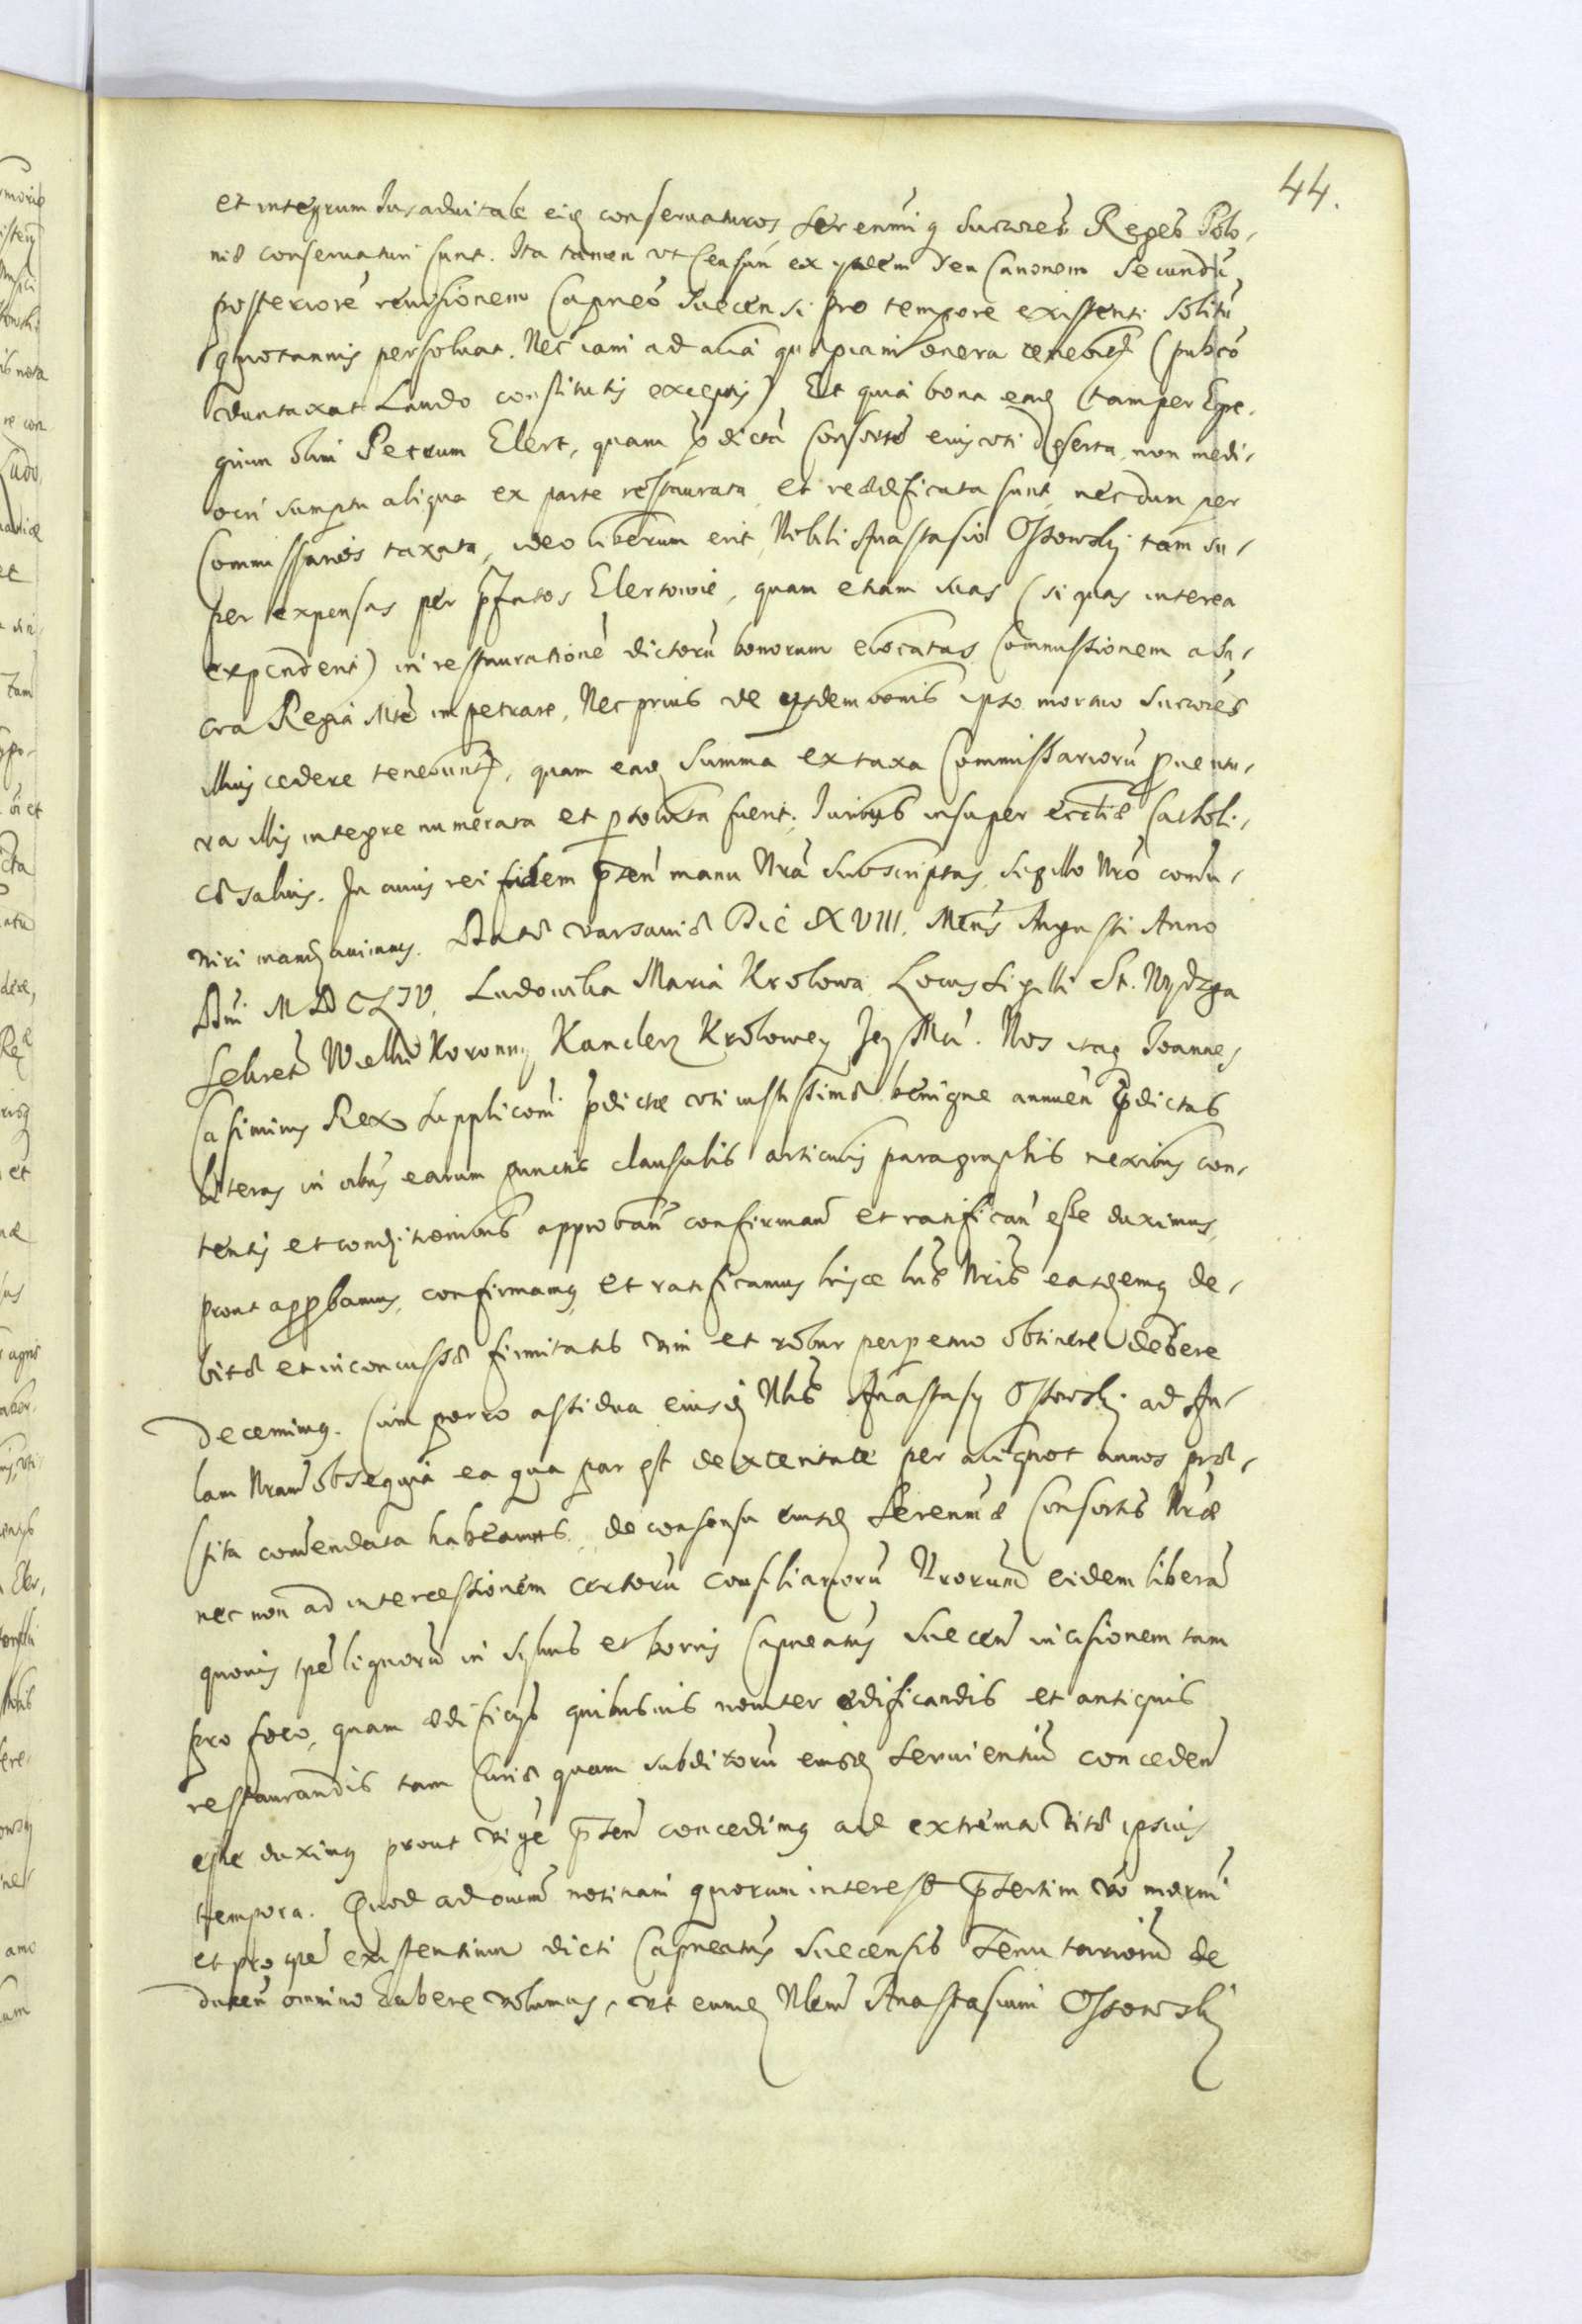 44.
et integrum Jus aduitale eiq conseruaturos, Serenmiq Succores Reges Polo-
niæ conseruaturi sunt. Ita tamen vt Censum ex ysdem seu Canonem secundũ
posteriorẽ reuisionem Capneo Suecensi pro tempore existenti solitũ
quotannis persoluat. Nec iam ad alia quæpiam onera tenebitr (pubco
duntaxat Laudo constitutis exceptis) Et quia bona eadȝ tam per Egre-
gium olim Petrum Elert, quam p̃dictã Consortẽ eius vti deserta, non medi-
ocri sumptu aliqua ex parte restaurata, et reædificata sunt, necdum per
Commissarios taxata, ideo liberum erit Nobili Anastasio Ossowskj tam su-
per expensas per p̃fatos Elertowie, quam etiam suas (si quas interea
expenderit) in restaurationẽ dictorũ bonorum elocatas Commissionem a Sa-
cra Regia Mtẽ impetrare, Nec prius de ysdem bonis ipso mortuo Succores
illius cedere tenebuntr, quam eadȝ summa ex taxa Commissariorũ prouentu-
ra illis integre numerata et p̱soluta fuerit. Juribus insuper eccliæ Catholi-
cæ saluis. In cuius rei fidem p̃ten manu Nrã subscriptas, sigillo Nrõ comu-
niri mandȝauimus. Datæ Varsauiæ Die XVIII. Mens Augusti Anno
Dni MDCLIV. Ludowika Maria Krolowa Locus Sigilli St. Wydzga
Sekret Wielki Koronny Kanclerz Krolowey Jey Mci. Nos itaq Joannes
Casimirus Rex Suppliconi p̃dictæ vti iustissimæ benigne annuen p̃dictas
literas in oibus earum punctis clausulis articulis paragraphis nexibus con-
tentis et condȝitionibus approban confirman et ratifican esse duximus,
prout approbamus, confirmamq et ratificamus hisce lris Nris easdemq de-
bitæ et inconcussæ firmitatis vim et robur perpetuo obtinere debere
decernimq. Cum porro assidua eiusdȝ Nlis Anastasy Ossowskj ad Au-
lam Nram obsequia ea qua par est dexteritate per aliquot annos præ-
stita comendata habeamus, de consensu eiusdȝ Serenmæ Consortis Nræ
nec non ad intercessionem certorũ Consiliariorũ Nrorum eidem liberã
quouis tpẽ lignorũ in syluis et borris Capneatus Suecen incisionem tam
pro foco, quam ædificys quibusuis nouiter ædificandis et antiquis
restaurandis tam Curiæ quam subditorũ eiusdȝ seruientium conceden
esse duximq prout vige p̃ten concedimq ad extrema vitæ ipsius
tempora. Quod ad oium notitiam quorum interest p̃sertim vo moderni
et pro tpe existentium dicti Capneatus Suecensis Tenutariorũ de
ducen omnino habere volumus, vt eumdȝ Nlem Anastasium Ossowskj